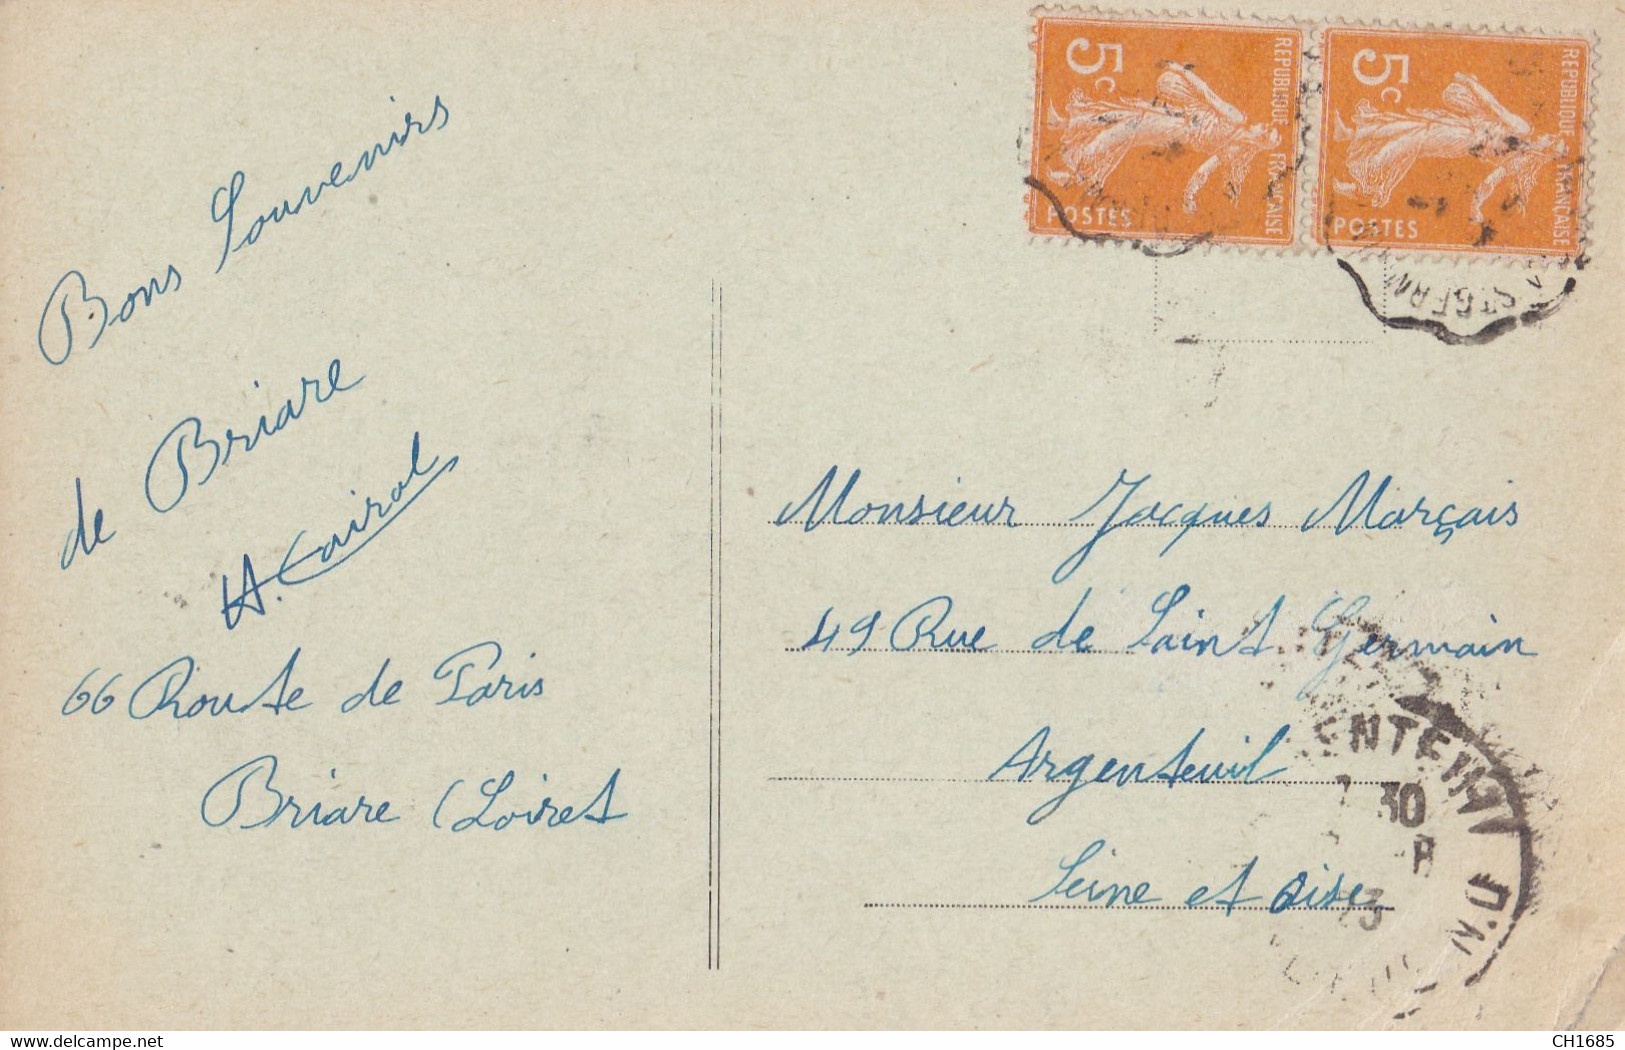 Bons Souvenirs
de Briare
H. Cairol
66 Route de Paris
Briare (Loiret
5c
REPUBLIQUE FRANÇAISE
POSTES
5c
REPUBLIQUE FRANÇAISE
POSTES
Monsieur Jacques Marçais
49 Rue de Saint Germain
Argenteuil
Seine et Oise
30
delcampe.net
CH1685